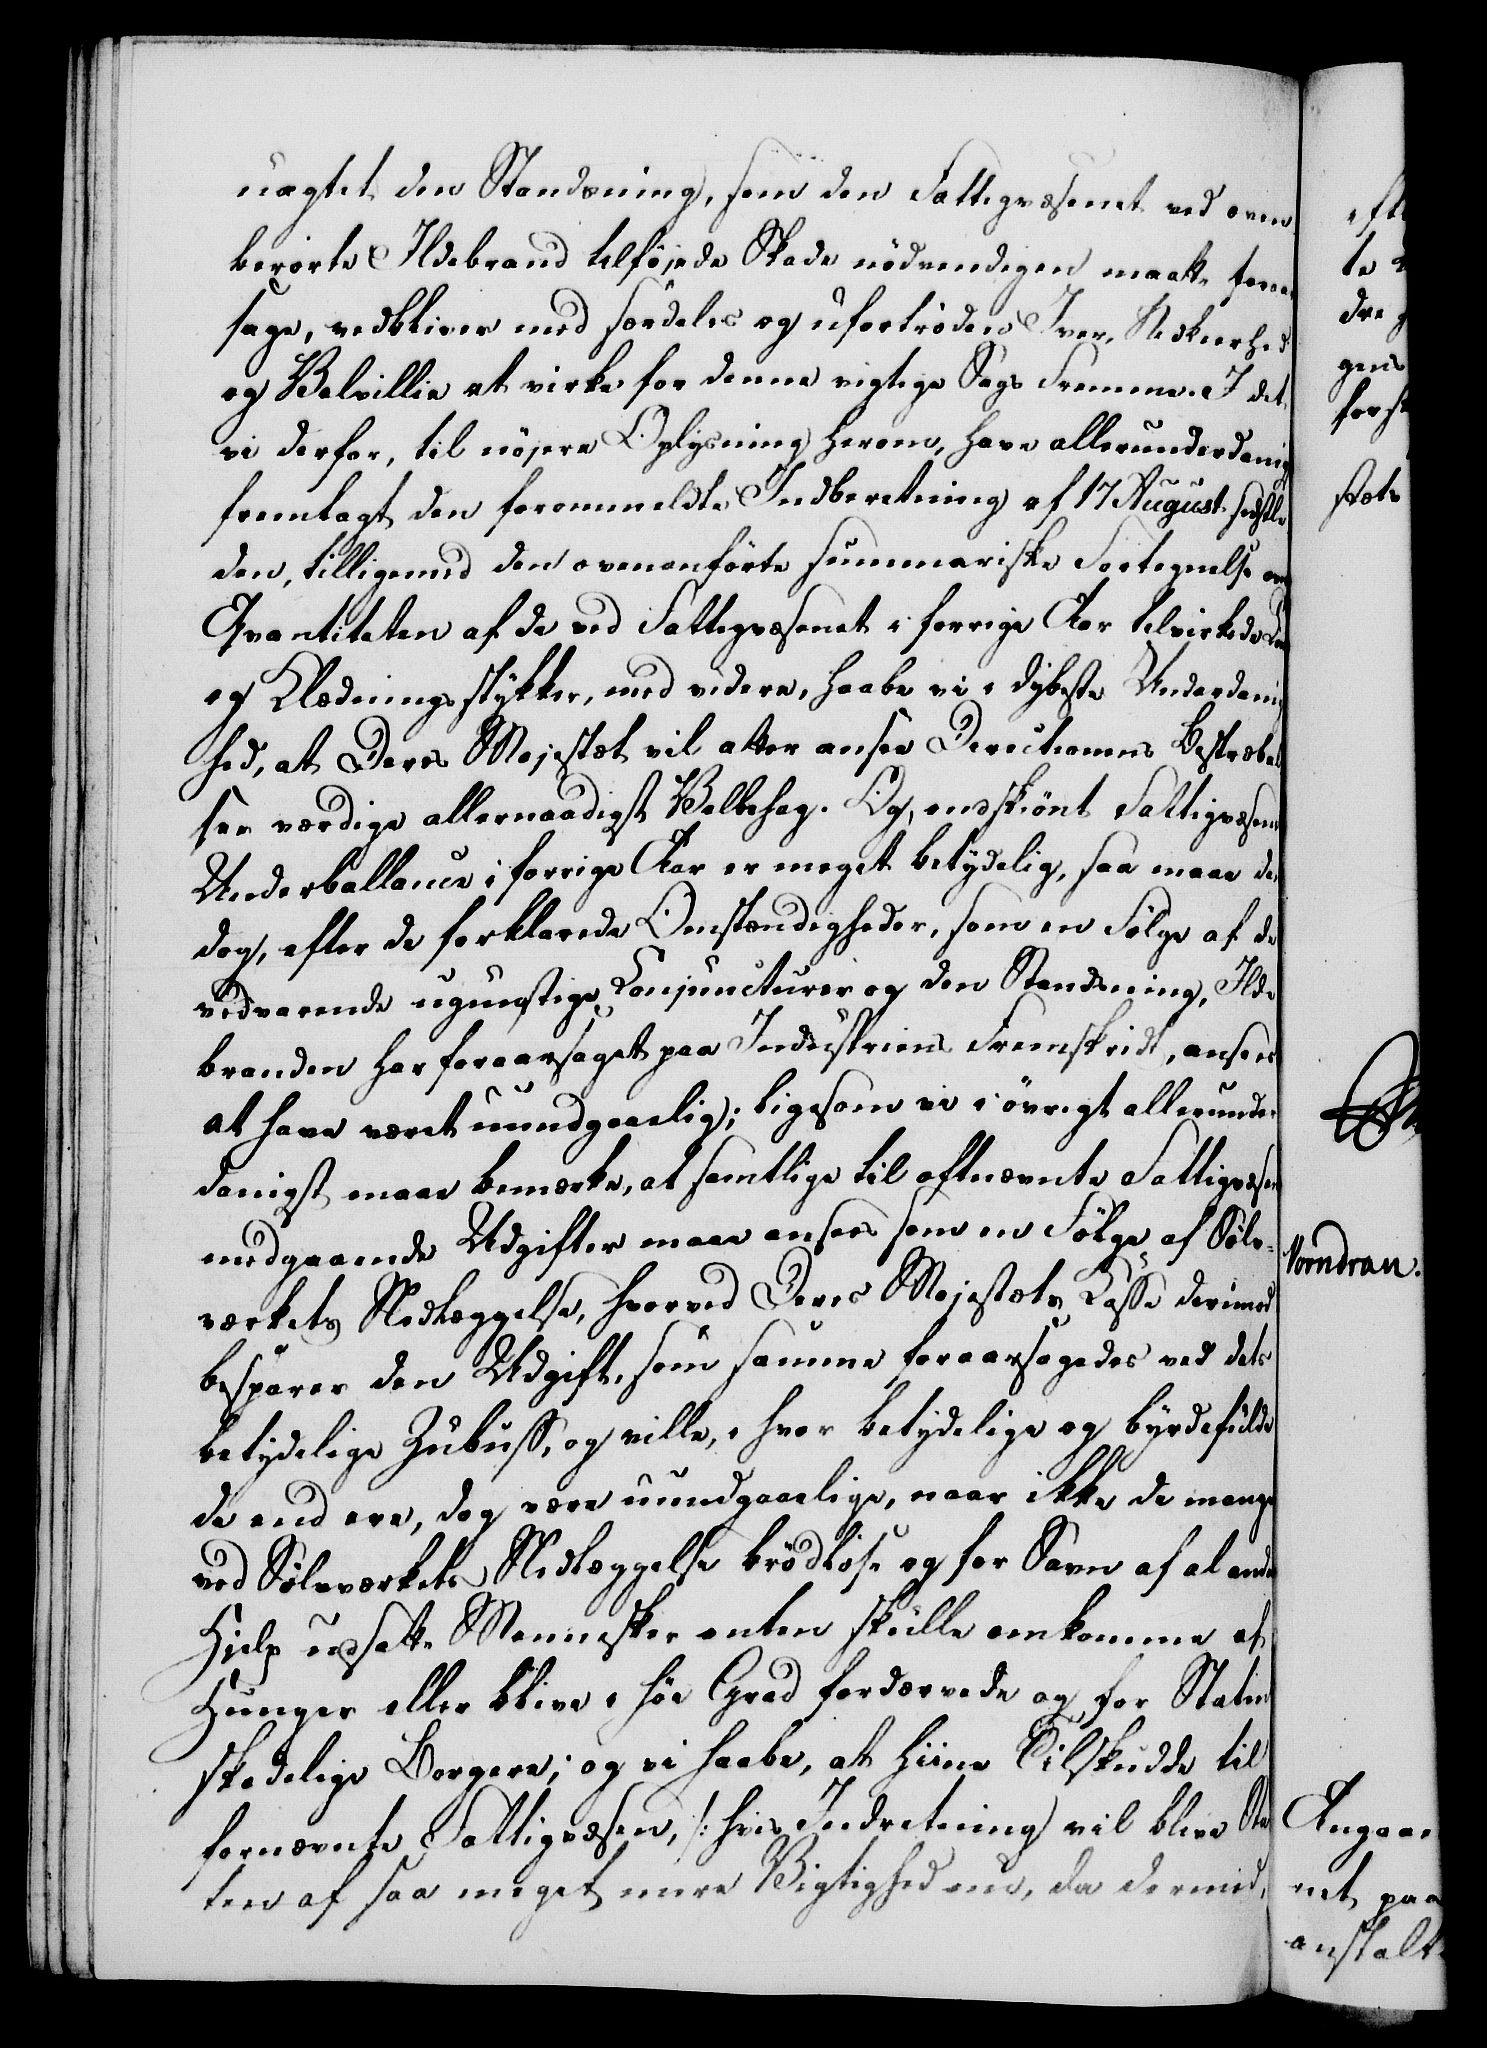 uagtet den Standsning, som den Fattigvæsenet ved oven
berörte Ildebrand tilföjede Skade nödvendigen maatte foraar
sage, vedbliver med særdeles og ufortröden Iver, Nidkierhed
og Velvillie at virke for denne vigtige Sags Fremme. I det
vi derfor, til nöjere Oplysning herom, have allerunderdanigst
fremlagt den forommeldte Indberetning af 17 August sidstle
den, tilligemed den ovenanförte summariske Fortegnelse over
Qvantiteten af de ved Fattigvæsenet i forrige Aar tilvirkede
og Klædningsstykker, med videre, haabe vi i dybeste Underdanig
hed, at Deres Majestæt vil atter ansee Directionens Bestræbel
ser værdige allernaadigst Velbehag. Og, endskiönt Fattigvæsenets
Underballance i forrige Aar er meget betydelig, saa maae den
dog, efter de forklarede Omstændigheder, som en Fölge af de
vedvarende ugunstige Conjuncturer og den Standsning, Ilde
branden har foraarsaget paa Industriens Fremskridt, ansees
at have været uundgaaelig; ligesom vi i övrigt allerunder
danigst maae bemærke, at samtlige til oftnævnte Fattigvæsen
medgaaende Udgifter maae ansees som en Fölge af Sölv-
værkets Nedlæggelse, hvorved Deres Majestæts Casse derimod
besparer den Udgift, som samme foraarsagedes ved dets
betydelige Zubuss, og ville, i hvor betydelige og byrdefulde
de end ere, dog være uundgaaelige, naar ikke de mange
ved Sölvværkets Nedlæggelse brödlöse og for Savn af al anden
Hielp udsatte Mennesker enten skulle omkomme af
Hunger eller blive i höi Grad fordærvede og for Staten
skadelige Borgere; og vi haabe, at hiine Tilskudde til
fornævnte Fattigvæsen, /: hvis Indretning vil blive Sta
ten af saa meget mere Vigtighed nu, da dermed,
te
dre
gens
forst
stets
Vorndran.
Angaae
net paa
anstalt